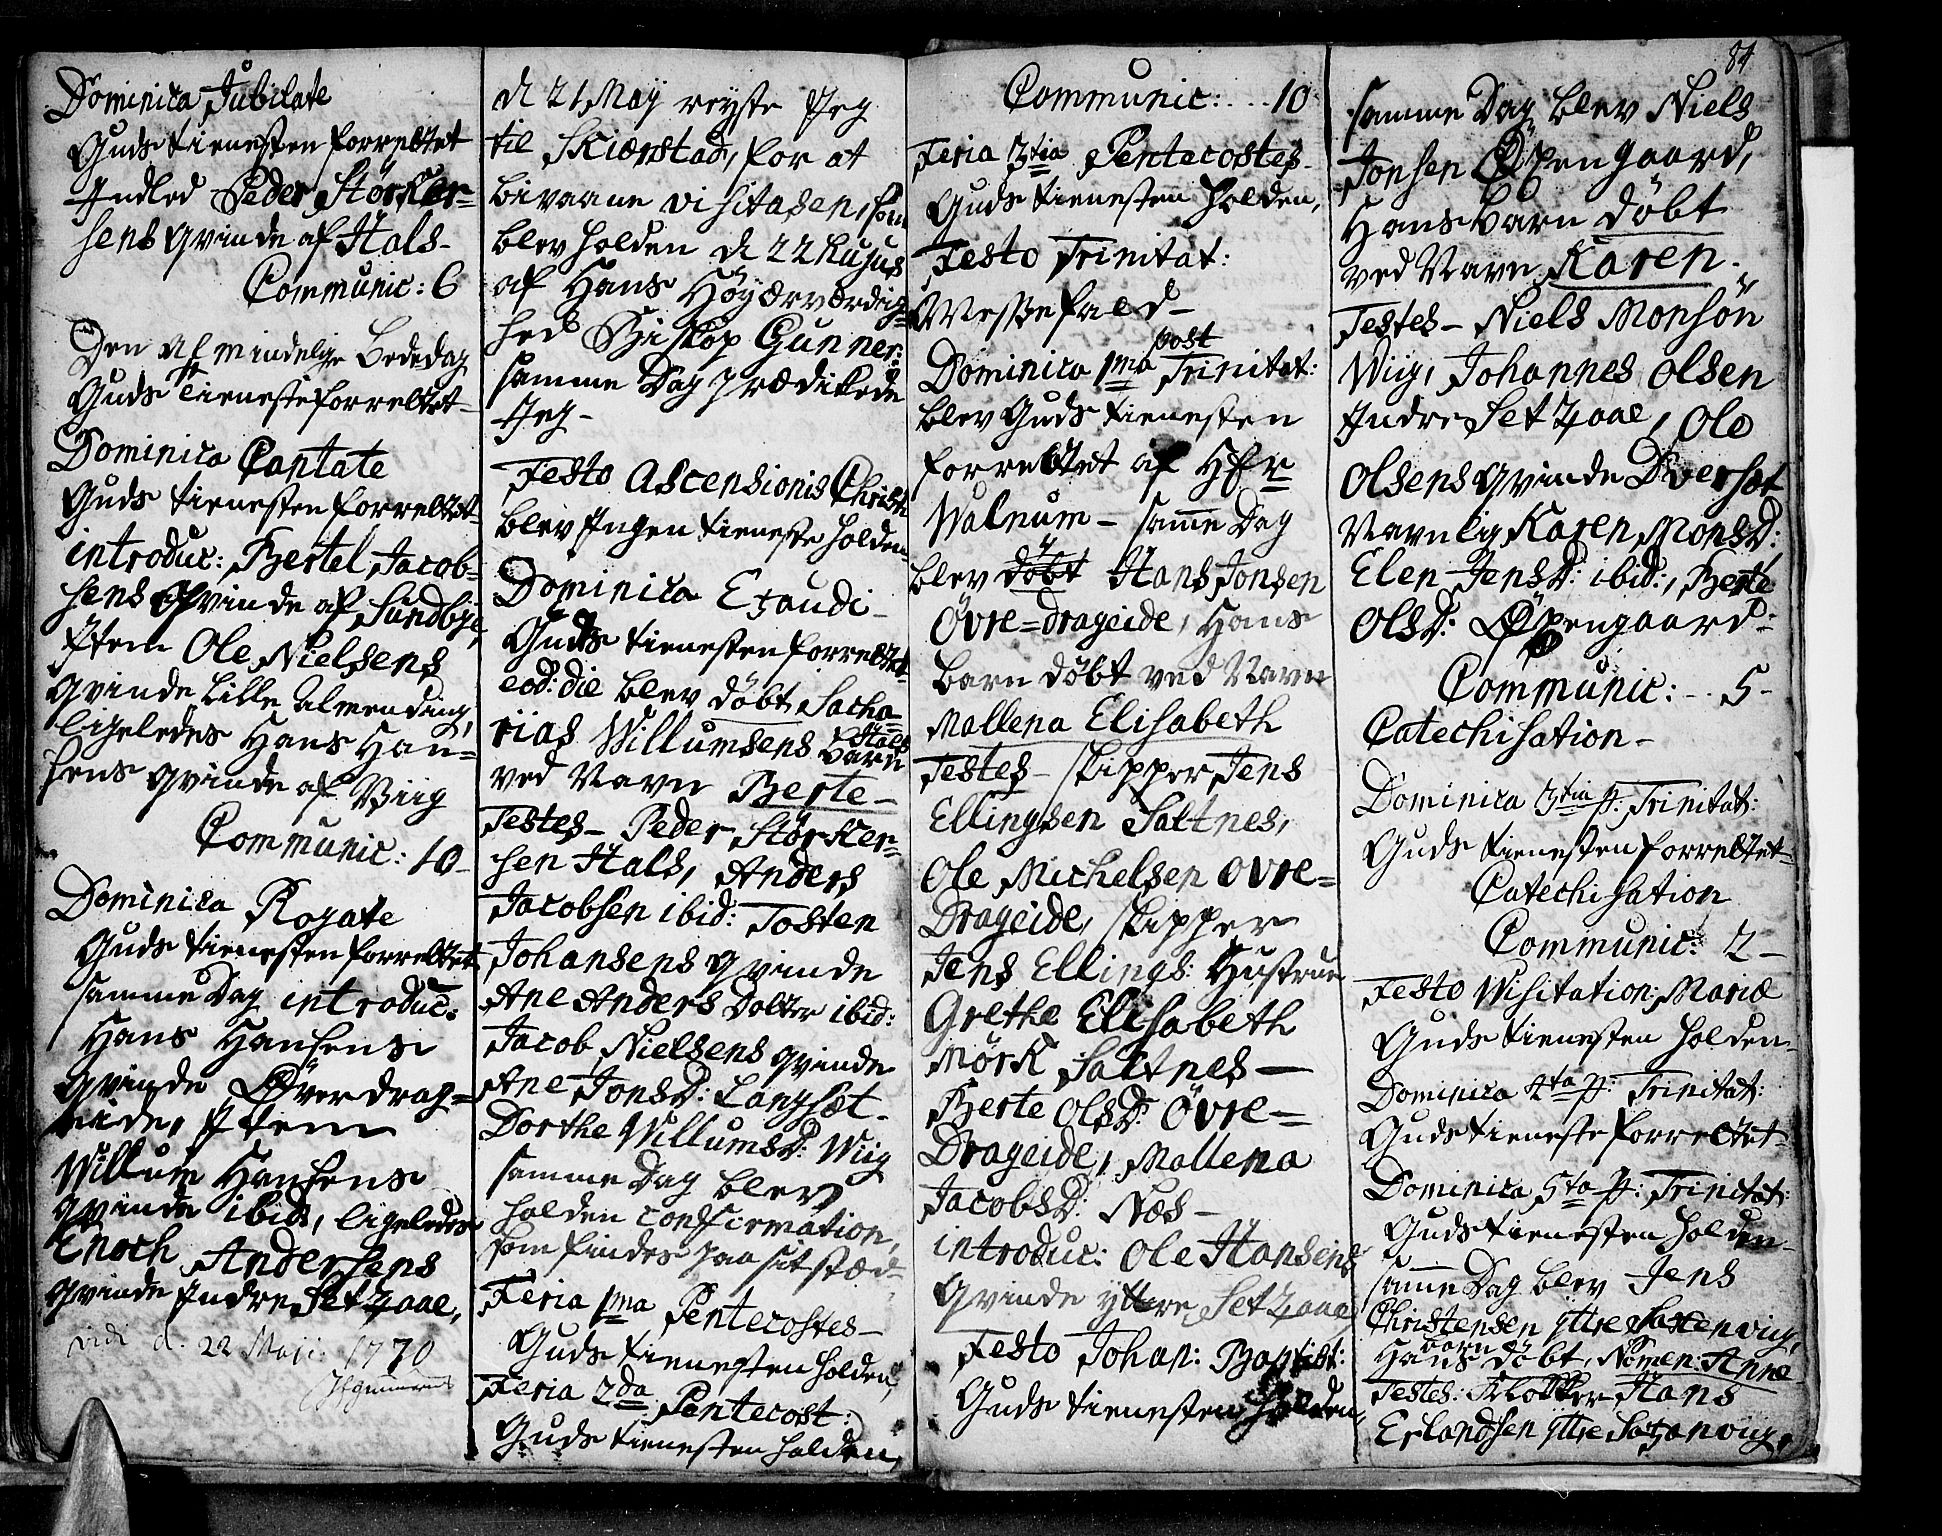 Dominica Jubilate
Guds tienesten forrettet
Indled Peder Störker=
sens qvinde af Hals-
Communic: 6
Den almindelige Bededag
Guds tieneste forrettet-
Dominica Cantate
Guds tienesten forrettet-
introduc: Bertel Jacob=
sens qvinde af Sundbye,
Item Ole Nielsens
qvinde Lille Almending,
ligeledes Hans Han=
sens qvinde af Viig
Communic: 10-
Dominica Rogate
Guds tienesten forrettet
samme Dag introduc:
Hans Hansens
qvinde Överdrag=
eide, Item
Willum Hansens
qvinde ibid, ligeledes
Enoch Andersens
qvinde Indre Setzaae,
vidi d. 22 Maji 1770
d 21 May reyste Jeg
til Skierstad, for at
bivaane visitasen, som
blev holden d 22 hujus
af Hans Höyærværdig=
hed Biskop Gunner:
samme Dag prædikede
Jeg-
Festo Ascensionis Christi
blev Ingen tieneste holden
Dominica Exaudi-
Guds tienesten forrettet-
eod: die blev döbt Sacha=
rias Willumsens Hals
barn
ved Navn Berte-
Testes- Peder Störker=
sen Hals, Anders
Jacobsen ibid: Tosten
Johansens qvinde
Ane Anders Dotter ibid:
Jacob Nielsens qvinde
Ane JonsD: Langset-
Dorthe WillumsD: Wiig
samme Dag blev
holden confirmation,
som findes paa sit stæd-
Feria 1ma Pentecostes-
Guds tienesten holden,
Feria 2da Pentecost:
Guds tienesten holden,
Communic: ... 10
Feria 3tia Pentecostes-
Guds tienesten holden,
Festo Trinitat:
Messefald-
Dominica 1ma post Trinitat:
blev Guds tienesten
forrettet af HEr
Walnum- samme Dag
blev döbt Hans Jonsen
Övre=drageide, Hans
barn döbt ved Navn
Mallena Elisabeth
Testes- skipper Jens
Ellingsen Saltnes,
Ole Michelsen Ovre=
Drageide, skipper
Jens Ellings: Hustrue
Grethe Elisabeth
Mörk Saltnes-
Berte OlsD: Övre=
Drageide, Mallena
JacobsD: Næs-
introduc: Ole Hansens
qvinde yttre Setzaae
Festo Johan: Baptist:
Guds tienesten holden,
84
samme Dag blev Niels
Jonsen Öpengaard,
Hans barn döbt
ved Navn Karen.
Testes- Niels Monsön
Wiig, Johannes Olsen
Indre Setzaae, Ole
Olsens qvinde Dverset
Navnlig Karen MonsD:
Elen JensD: ibid:, Berte
OlsD: Öpengaard:
Communic: ... 5-
Catechisation-
Dominica 3tia p: Trinitat:
Guds tienesten forrettet-
Catechisation
Communic: 2-
Festo Visitation: Mariæ
Guds tienesten holden-
Dominica 4ta p: Trinitat:
Guds tieneste forrettet-
Dominica 5ta p: Trinitat:
Guds tienesten holden-
samme Dag blev Jens
Christensen yttre Saxenviig,
Hans barn döbt, Nomen: Anne
Testes: Klokker Hans
Erlandsen yttre Saxenviig,